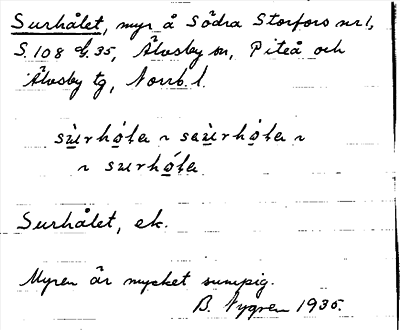 Surhålet, myr å Södra Storfors nr 1,
S. 108 G. 35, Älvsby sn, Piteå och
Älvsby tg, Norrb. l.
sùrhó̱ḷa ~ saùrhó̱ḷa ~
~ surhó̱ḷa
Surhålet, ek.
Myren är mycket sumpig.
B. Nygren 1935.